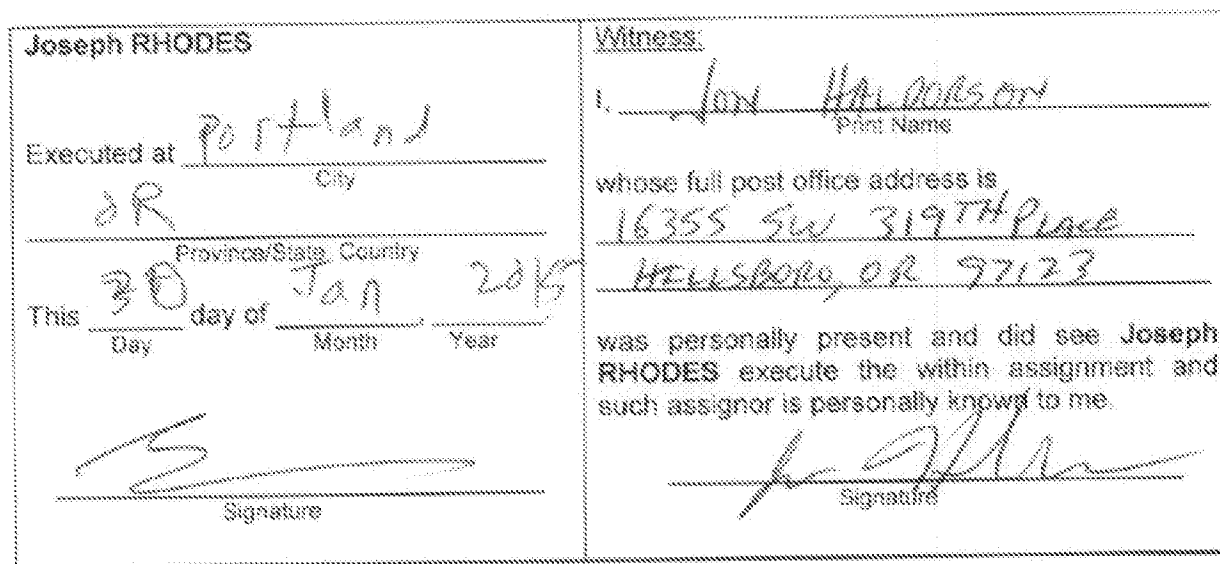 Joseph RHODES
Executed at Portland
City
OR
Province/State, Country
This 30 day of Jan 2015
Day Month Year
Signature
Witness:
I, Jon HALDORSON
Print Name
whose full post office address is
16355 SW 319TH PLACE
HILLSBORO, OR 97123
was personally present and did see Joseph
RHODES execute the within assignment and
such assignor is personally known to me.
Signature